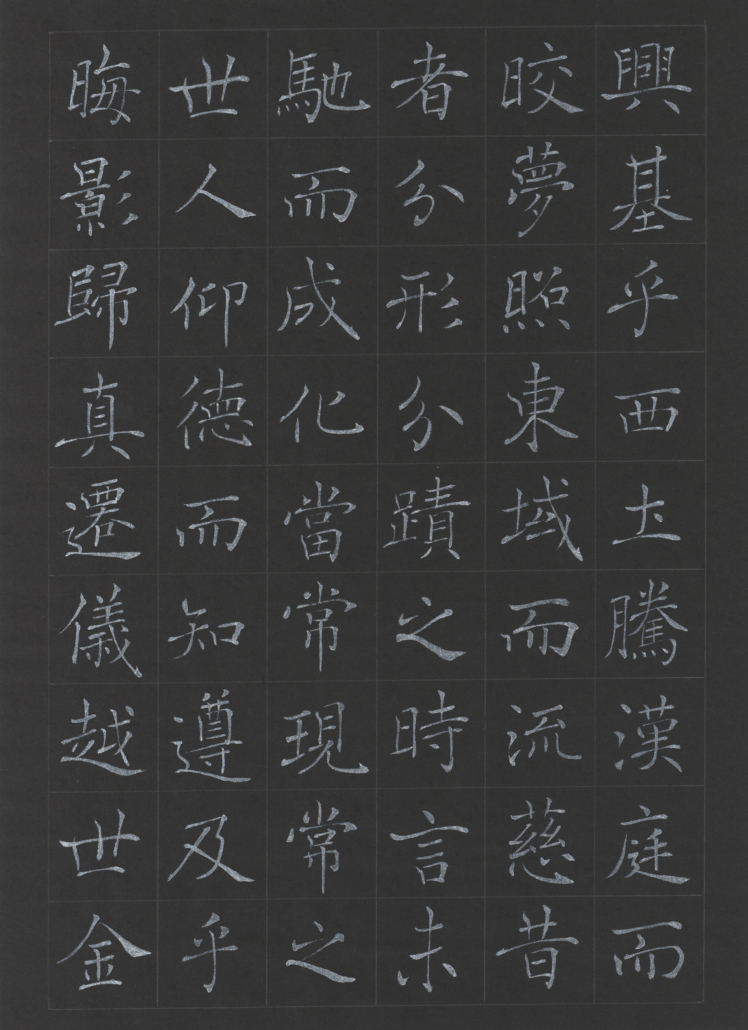 興基乎西土騰漢庭而
皎夢照東域而流慈昔
者分形分蹟之時言未
馳而成化當常現常之
世人仰德而知遵及乎
晦影歸真遷儀越世金